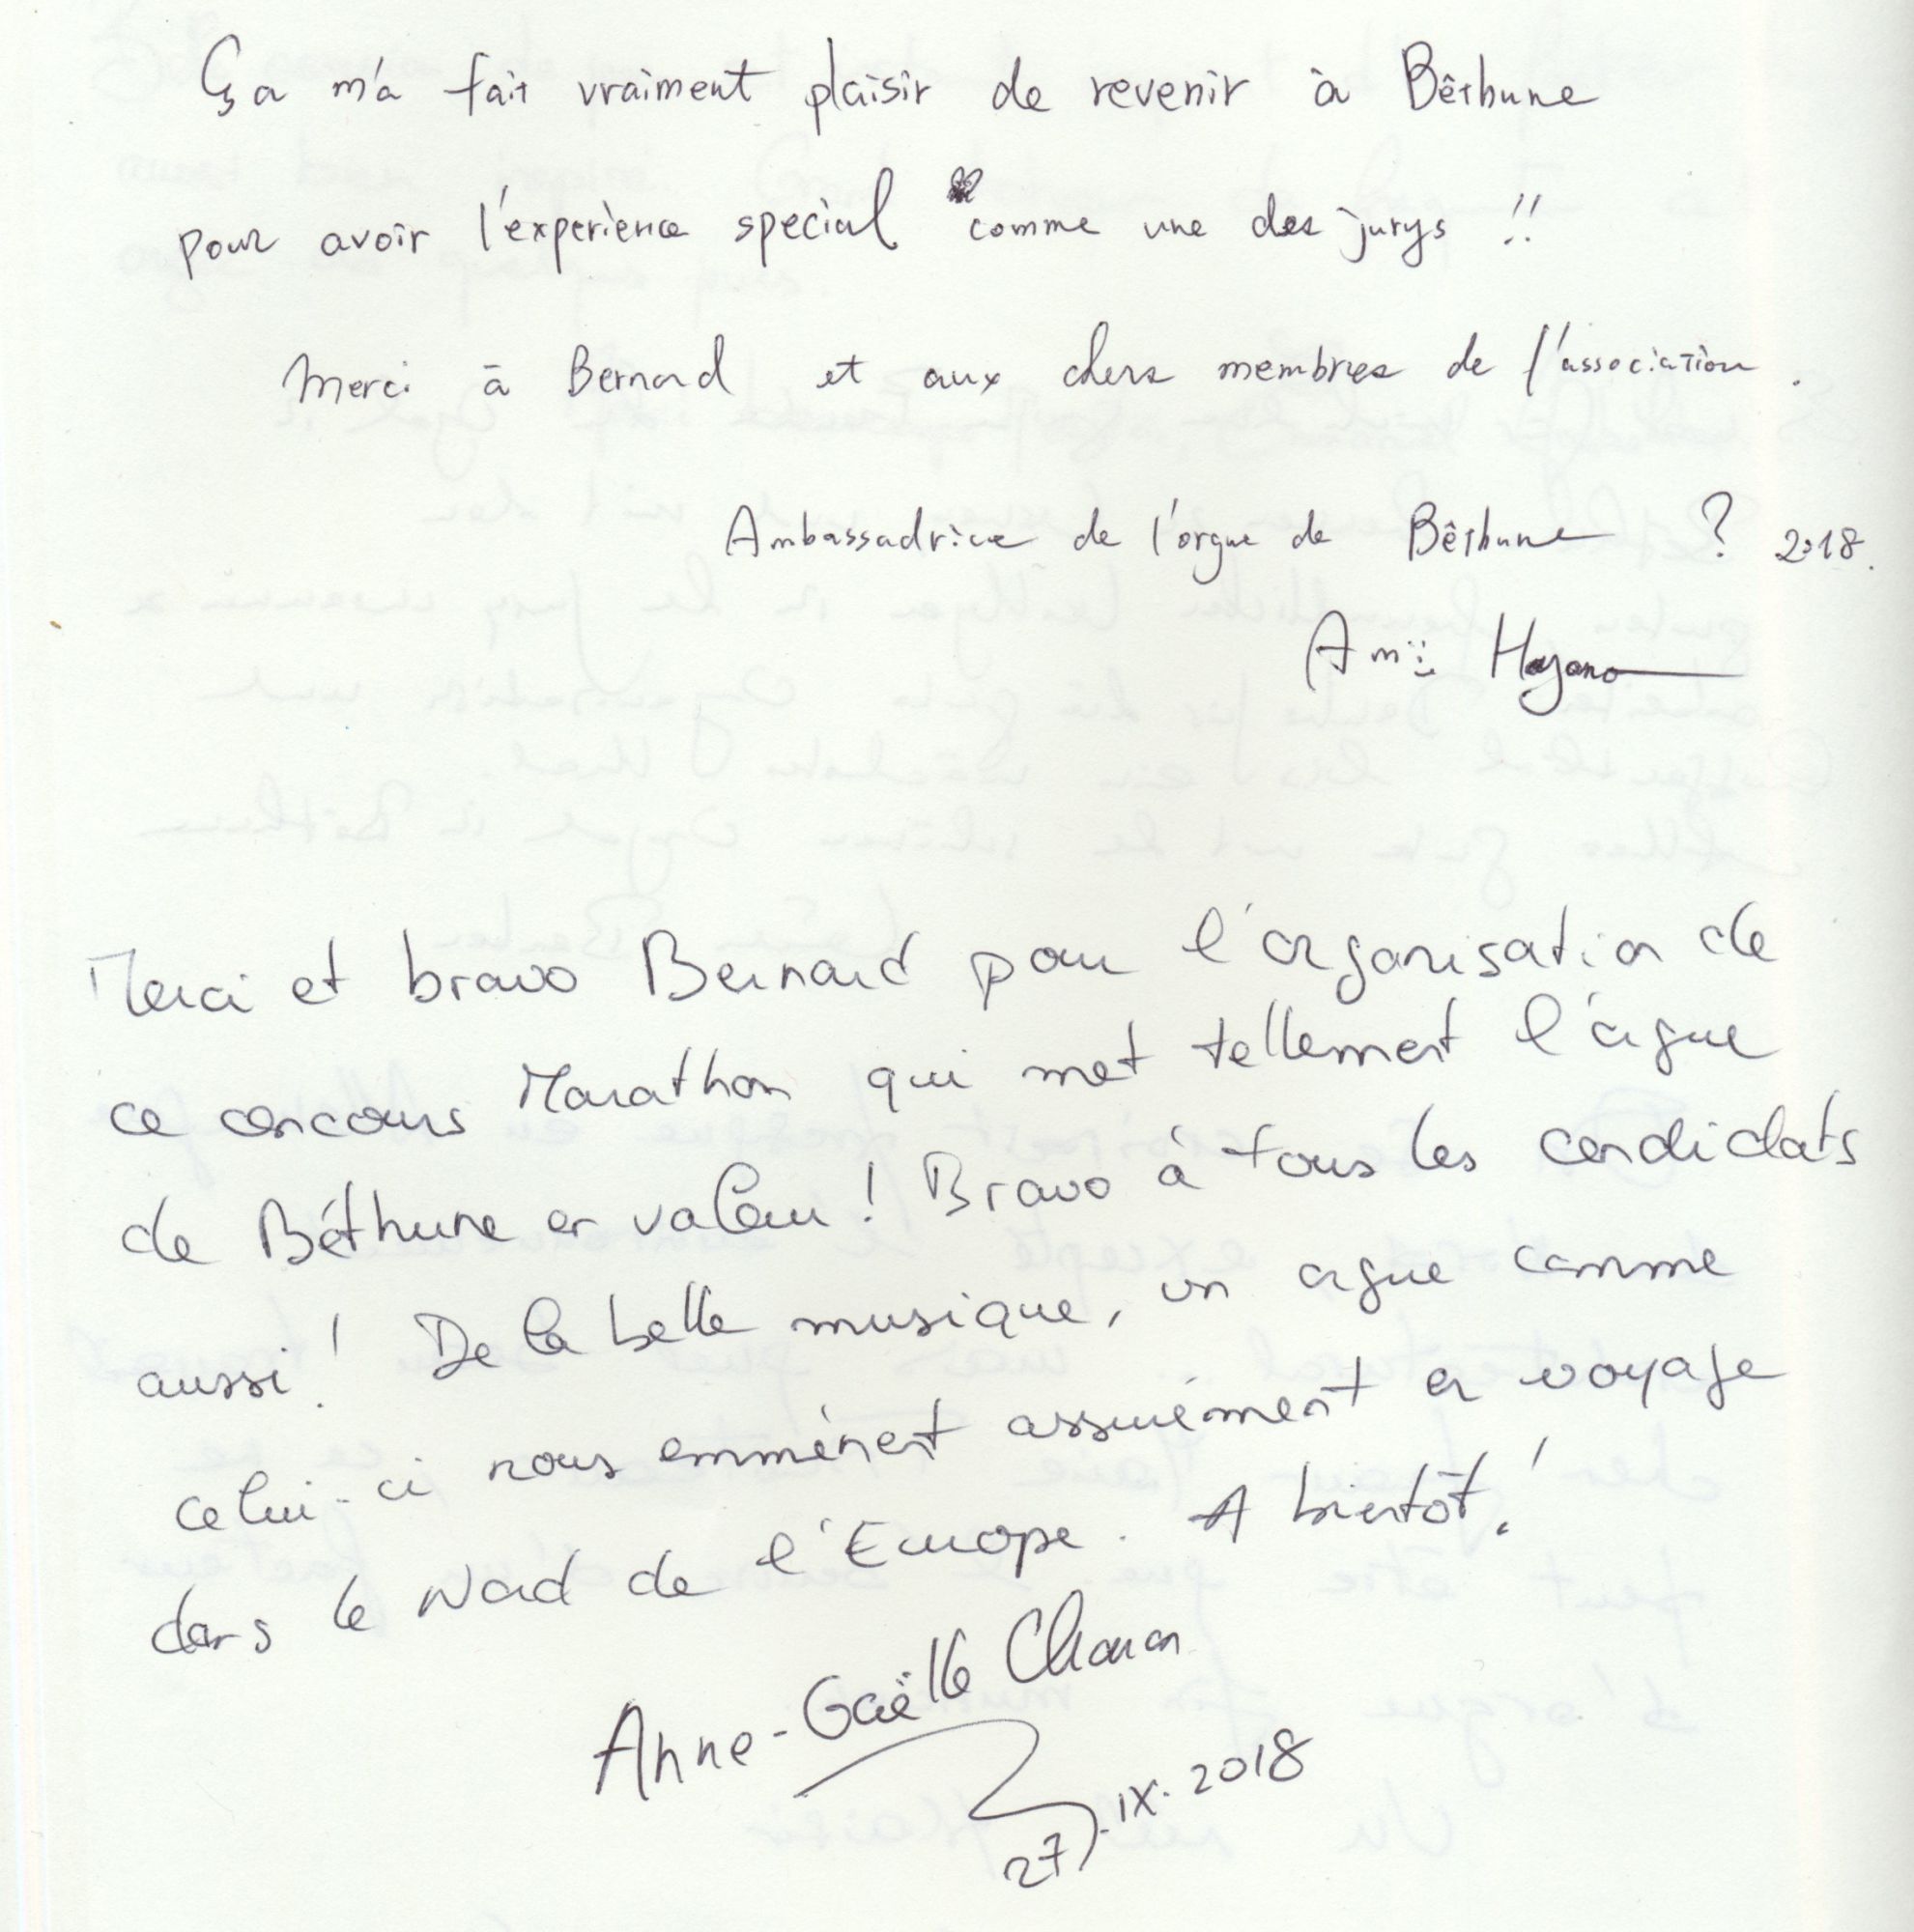 Ça m'a fait vraiment plaisir de revenir à Bêthune
pour avoir l'experience special comme une des jurys !!
Merci à Bernard et aux chers membres de l'association.
Ambassadrice de l'orgue de Bêthune ? 2018.
Ami Hoyano
Merci et bravo Bernard pour l'organisation de
ce concours Marathon qui met tellement l'orgue
de Béthune en valeur ! Bravo à tous les candidats
aussi ! De la belle musique, un orgue comme
celui-ci nous emmènent assurément en voyage
dans le Nord de l'Europe. A bientôt !
Anne-Gaëlle Chanon
27.IX.2018